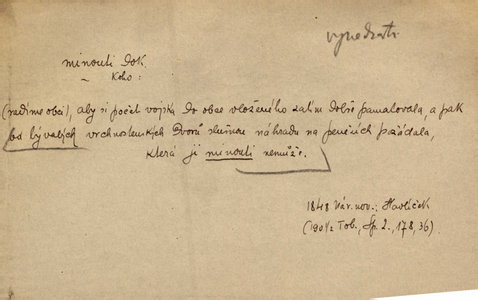 minouti dok.
~ koho:
(radíme obci), aby si počet vojska do obce vloženého zatím dobře pamatovala, a pak
od bývalých vrchnostenských dvorů slušnou náhradu na penězích požádala,
která ji minouti nemůže.
1848 Nár. nov.; Havlíček
(1901/2 Tob., Sp. 2., 178, 36).